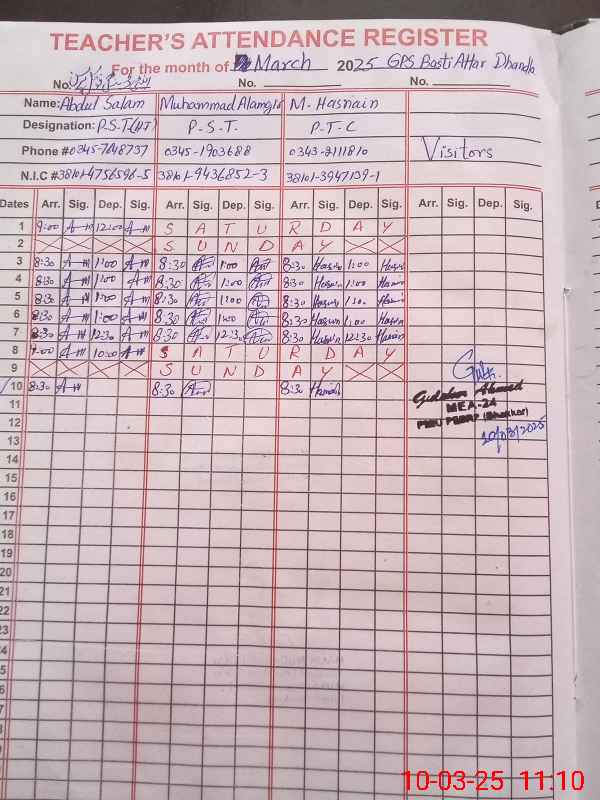 TEACHER'S ATTENDANCE REGISTER
For the month of March 2025 GPS Basti Attar Dhandla
No. No. No.
Name: Abdul Salam Muhammad Alamgir M. Hasnain
Designation: P.S.T (H.T) P.S.T. P.T.C
Phone # 0345-7848737 0345-1903688 0343-2111810 Visitors
N.I.C # 38101-4756596-5 38101-9436852-3 38101-3947139-1
Dates Arr. Sig. Dep. Sig. Arr. Sig. Dep. Sig. Arr. Sig. Dep. Sig. Arr. Sig. Dep. Sig.
1 9:00 12:00 S A T U R D A Y
2 S U N D A Y
3 8:30 1:00 8:30 1:00 8:30 Hasnain 1:00 Hasnain
4 8:30 1:00 8:30 1:00 8:30 Hasnain 1:00 Hasnain
5 8:30 1:00 8:30 1:00 8:30 Hasnain 1:00 Hasnain
6 8:30 1:00 8:30 1:00 8:30 Hasnain 1:00 Hasnain
7 8:30 12:30 8:30 12:30 8:30 Hasnain 12:30 Hasnain
8 9:00 10:00 S A T U R D A Y
9 S U N D A Y
10 8:30 8:30 8:30 Hasnain
11 MEA-24
12 PMU PMIRP (Bhakkar)
13 10/03/2025
14
15
16
17
18
19
20
21
22
23
10-03-25 11:10